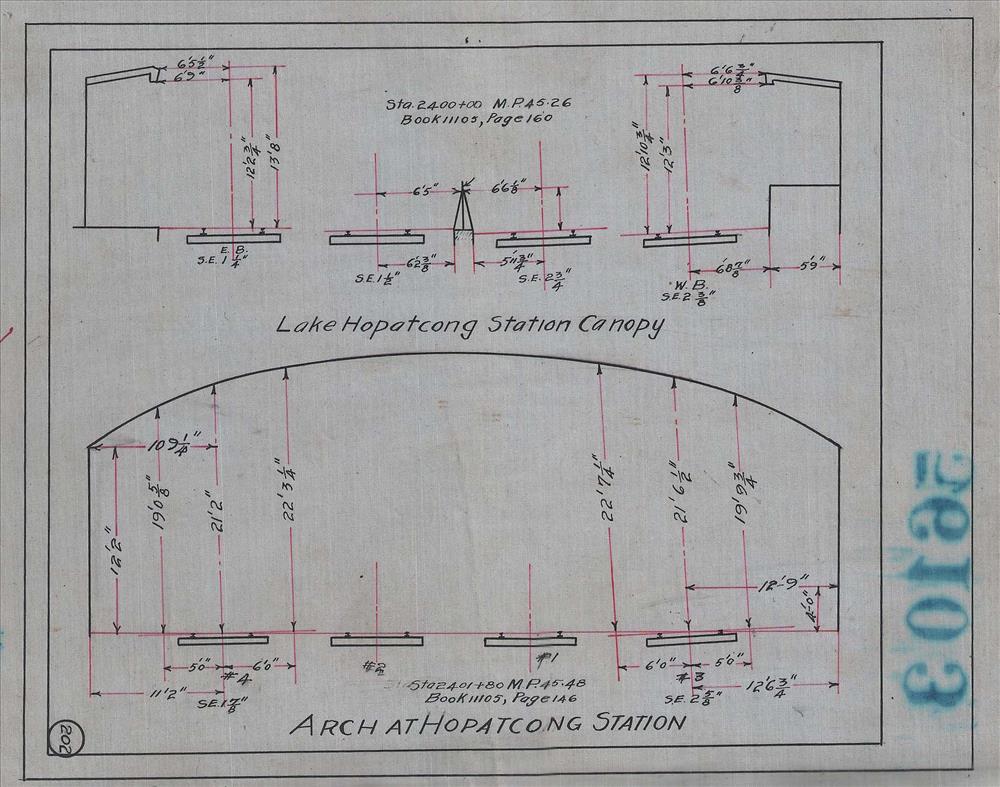 6'5½"
6'9"
12'2¾"
13'8"
E. B.
S.E. 1 ¼"
Sta. 2400+00 M.P. 45.26
Book 11105, Page 160
6'5"
6'6⅛"
6'2⅜"
5'11¾"
S.E. 1½"
S.E. 2¾"
6'6¾"
6'10⅜"
12'10¾"
12'3"
6'8⅞"
5'9"
W. B.
S.E. 2 ⅜"
Lake Hopatcong Station Canopy
10 9¼"
12'2"
19'0⅝"
21'2"
22'3¼"
22'7¼"
21'6½"
19'9¾"
12'-9"
4'-0"
5'0"
6'0"
#4
#2
#1
6'0"
5'0"
#3
11'2"
S.E. 1⅞"
S.E. 2⅝"
12'6¾"
Sta 2401+80 M.P. 45.48
Book 11105, Page 146
ARCH AT HOPATCONG STATION
202
56103